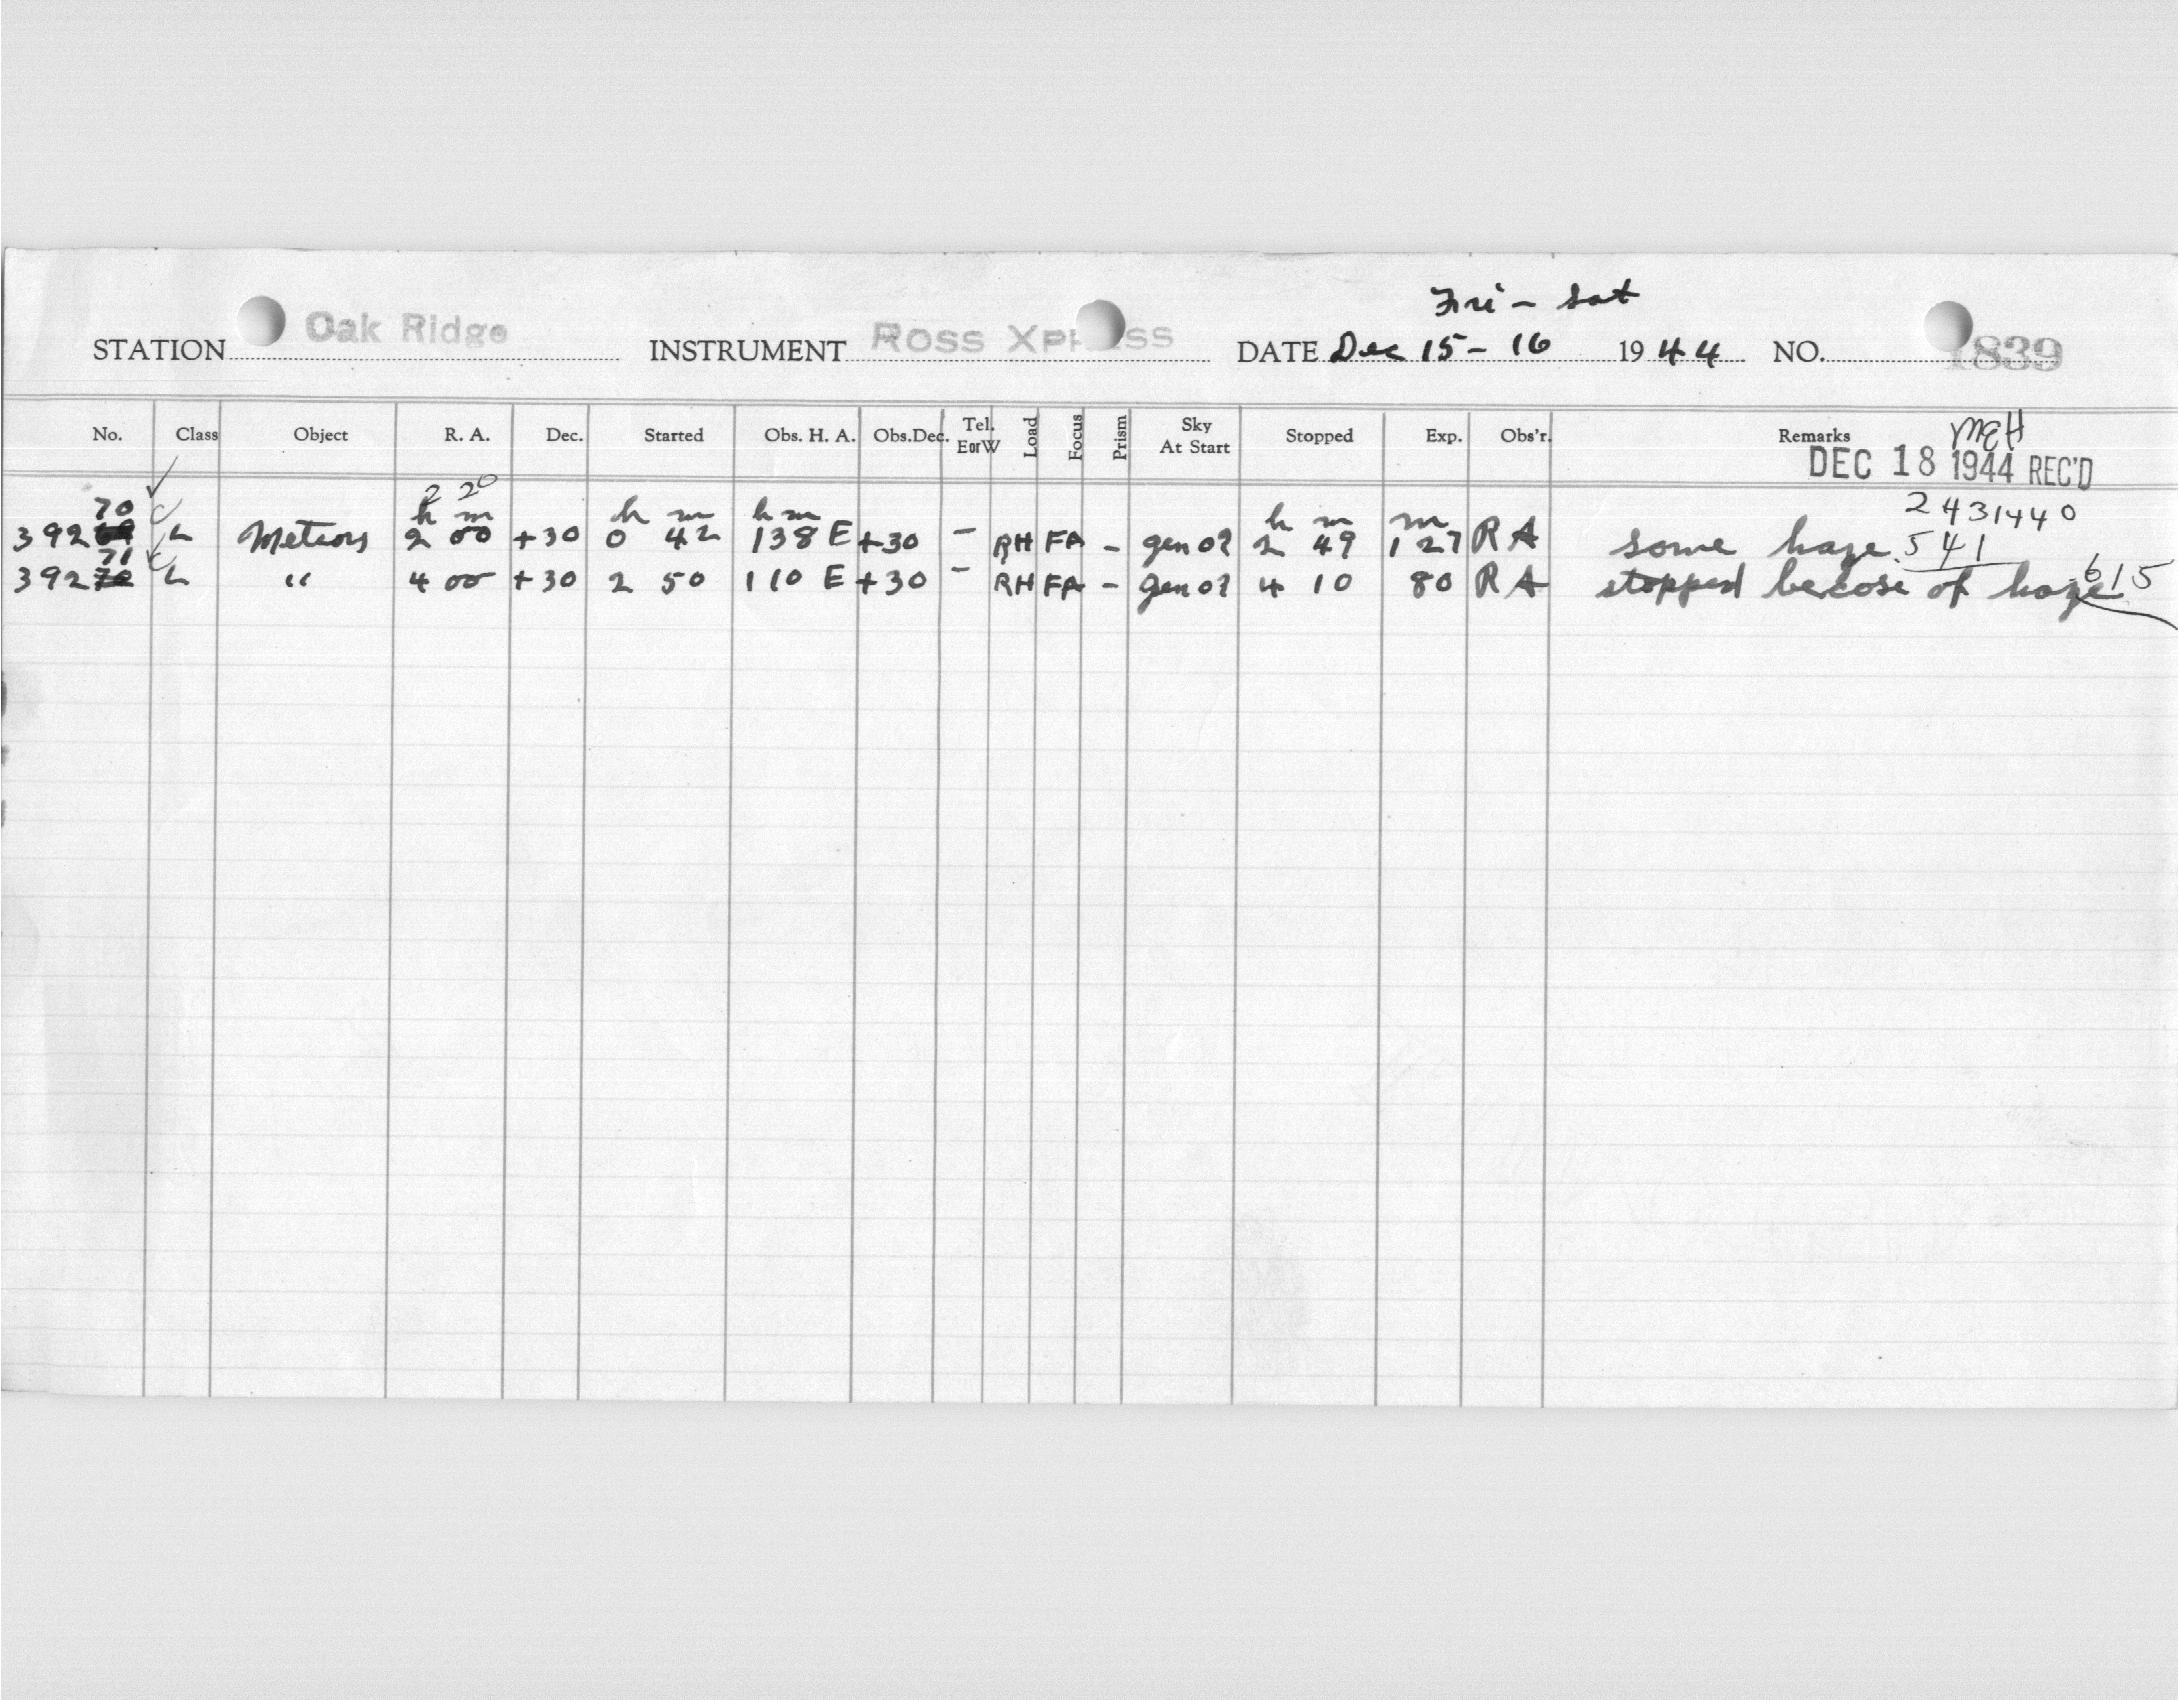 Fri - Sat
STATION Oak Ridge INSTRUMENT Ross Xpress DATE Dec 15-16 1944 NO. 1839
No. Class Object R. A. Dec. Started Obs. H. A. Obs.Dec. Tel. EorW Load Focus Prism Sky At Start Stopped Exp. Obs'r. Remarks
MEH
DEC 18 1944 REC'D
2 20
70 h m h m h m h m m 2431440
392 L Meteors 2 00 +30 0 42 1 38 E +30 - RH FA - gen 0? 2 49 127 RA some haze .541
71
39270 L " 4 00 +30 2 50 1 10 E +30 - RH FA - gen 0? 4 10 80 RA stopped becose of haze .615